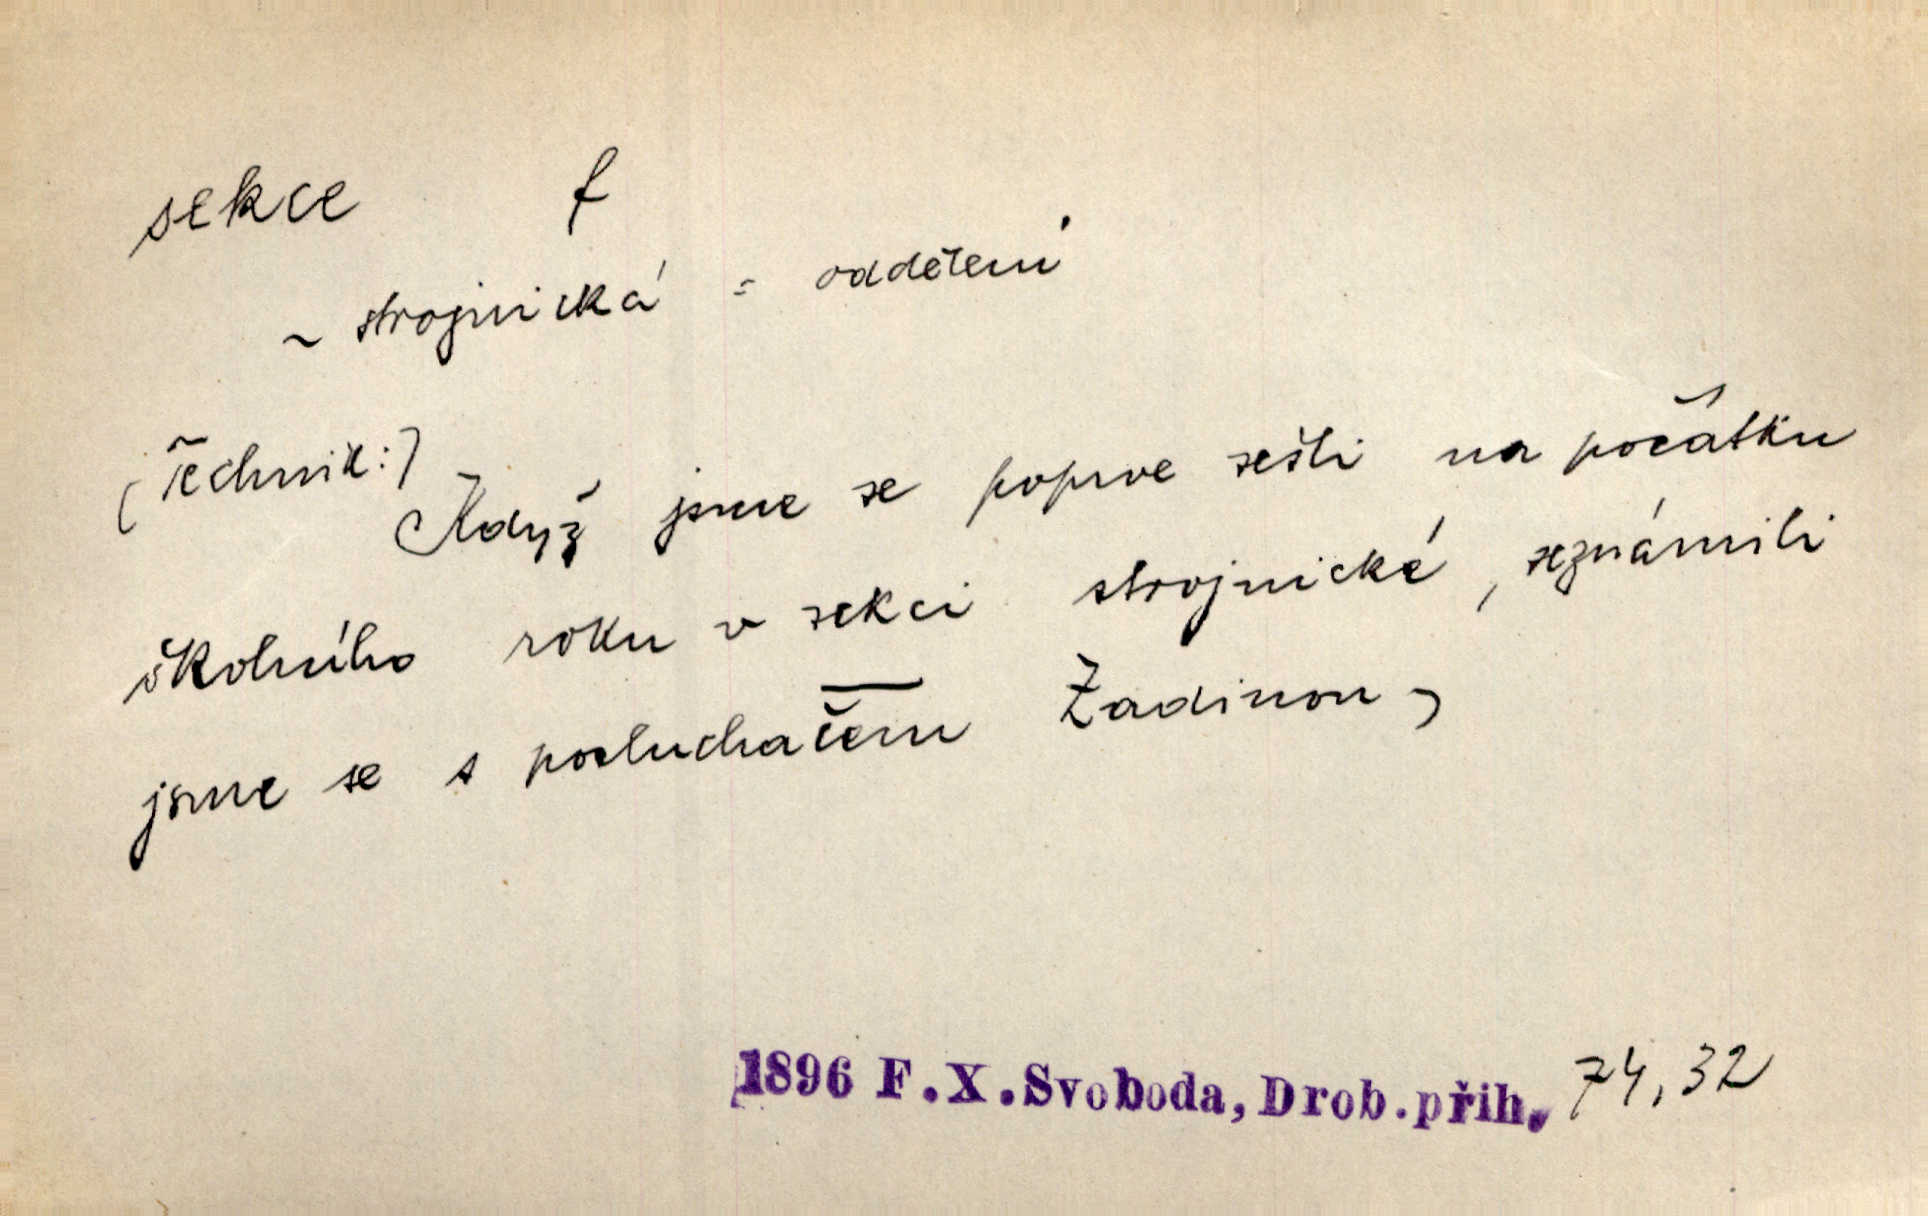 sekce f
~ strojnická = oddělení
(Technik:)
Když jsme se poprve sešli na počátku
školního roku v sekci strojnické, seznámili
jsme se s posluchačem Žadinou,
1896 F.X.Svoboda, Drob.přih. 74,32